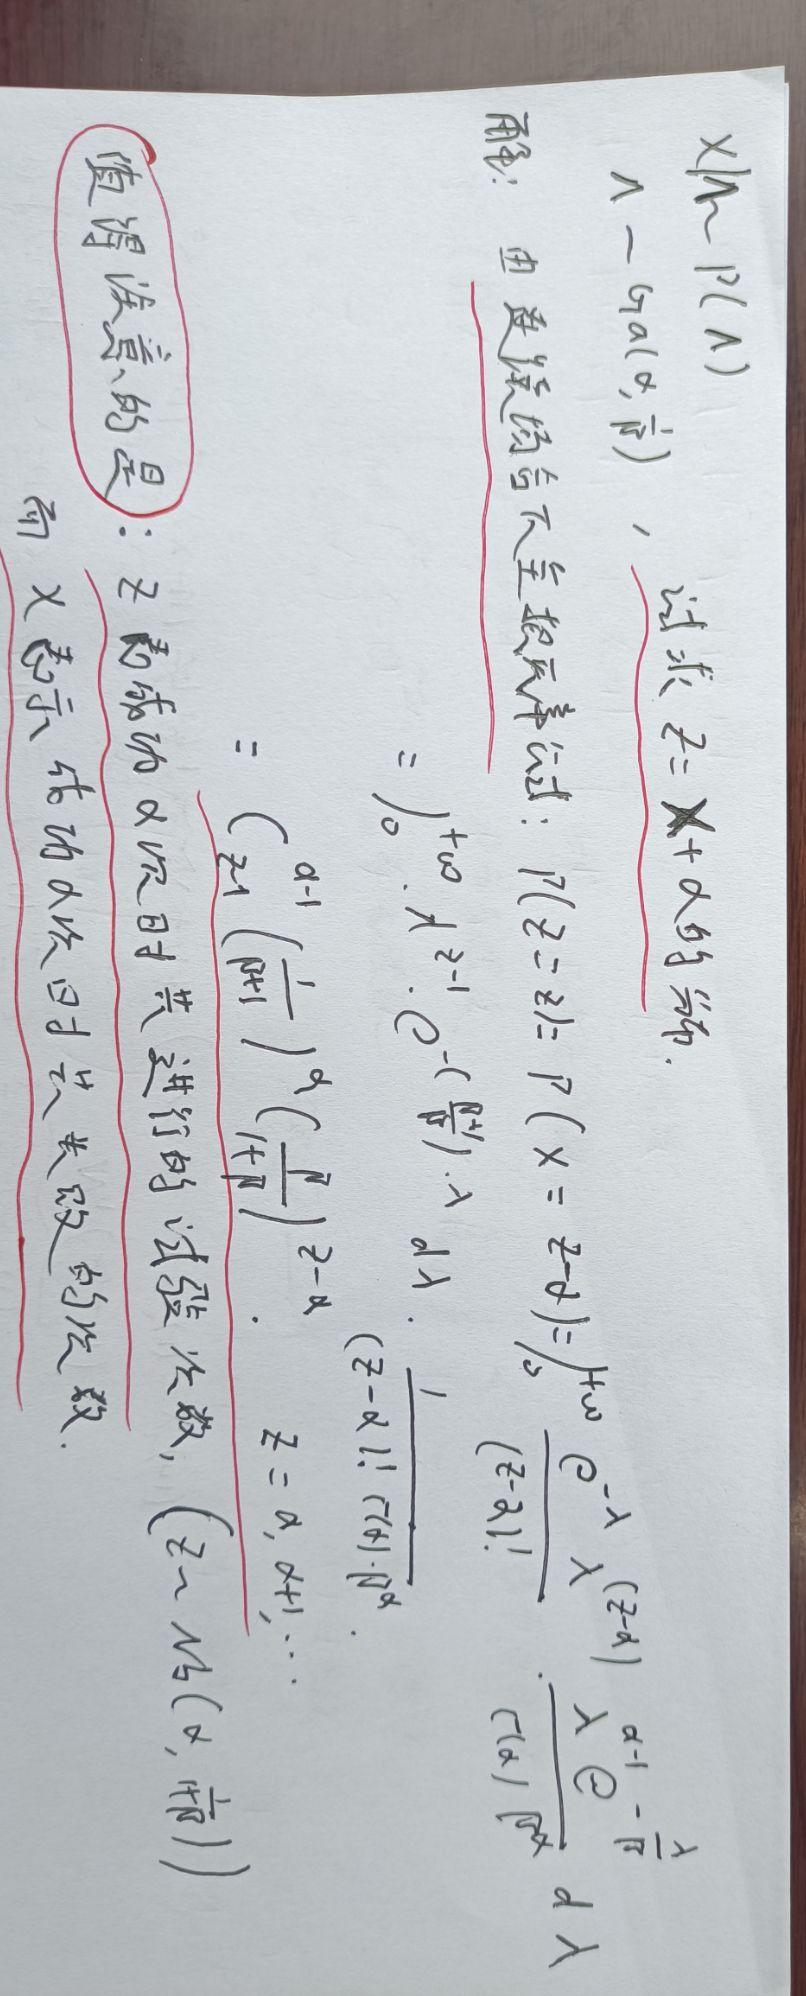 X|Λ~P(Λ)
Λ~Ga(α, 1/β), 试求 Z=X+α的分布.
解: 由连续场合下全概率公式: P(Z=z)=P(X=z-α)=∫₀^{+∞} e^{-λ} λ^{(z-α)}/(z-α)! · λ^{α-1} e^{-λ/β}/(Γ(α) β^α) dλ
=∫₀^{+∞} · λ^{z-1} · e^{-(β+1/β)·λ} dλ · 1/((z-α)! Γ(α)·β^α) .
= (_{z-1}^{α-1}) (1/(β+1))^α (β/(1+β))^{z-α} . z=α, α+1, ...
值得注意的是: Z为成功α次时共进行的试验次数, (Z~Nb(α, 1/(1+β)))
而 X表示成功α次时共失败的次数.